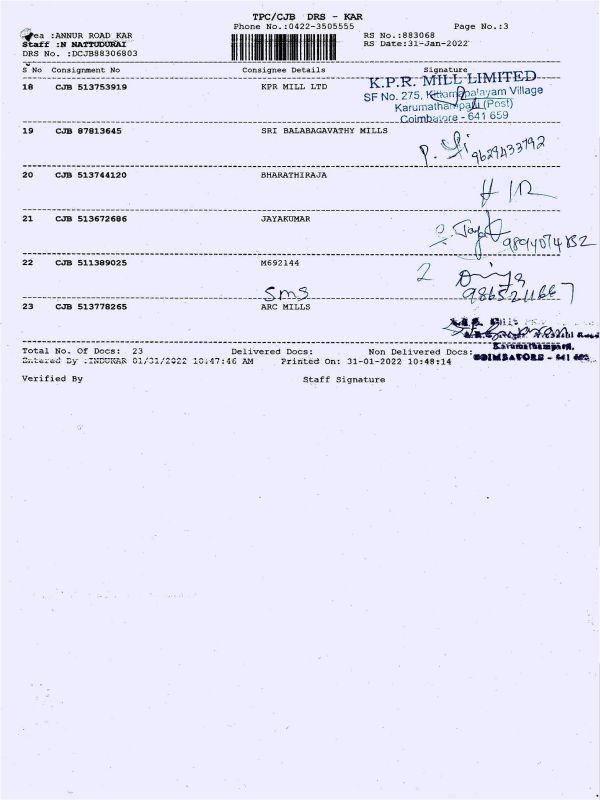 TPC/CJB DRS - KAR
Phone No.:0422-3505555 Page No.:3
:ANNUR ROAD KAR RS No.:883068
Staff :N NATTUDURAI RS Date:31-Jan-2022
DRS No. :DCJB88306803
S No Consignment No Consignee Details Signature
18 CJB 513753919 KPR MILL LTD
K.P.R. MILL LIMITED
SF No. 275, Village
(Post)
Coimbatore - 641 659
19 CJB 87813645 SRI BALABAGAVATHY MILLS
9629433792
20 CJB 513744120 BHARATHIRAJA
21 CJB 513672686 JAYAKUMAR
22 CJB 511389025 M692144
2
sms
23 CJB 513778265 ARC MILLS
Total No. Of Docs: 23 Delivered Docs: Non Delivered Docs:
Entered By :INDUKAR 01/31/2022 10:47:46 AM Printed On: 31-01-2022 10:48:14
COIMBATORE - 641
Verified By Staff Signature